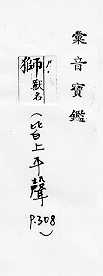 彙音寶鑑
獅 獸名
(皆上平聲 P.308)